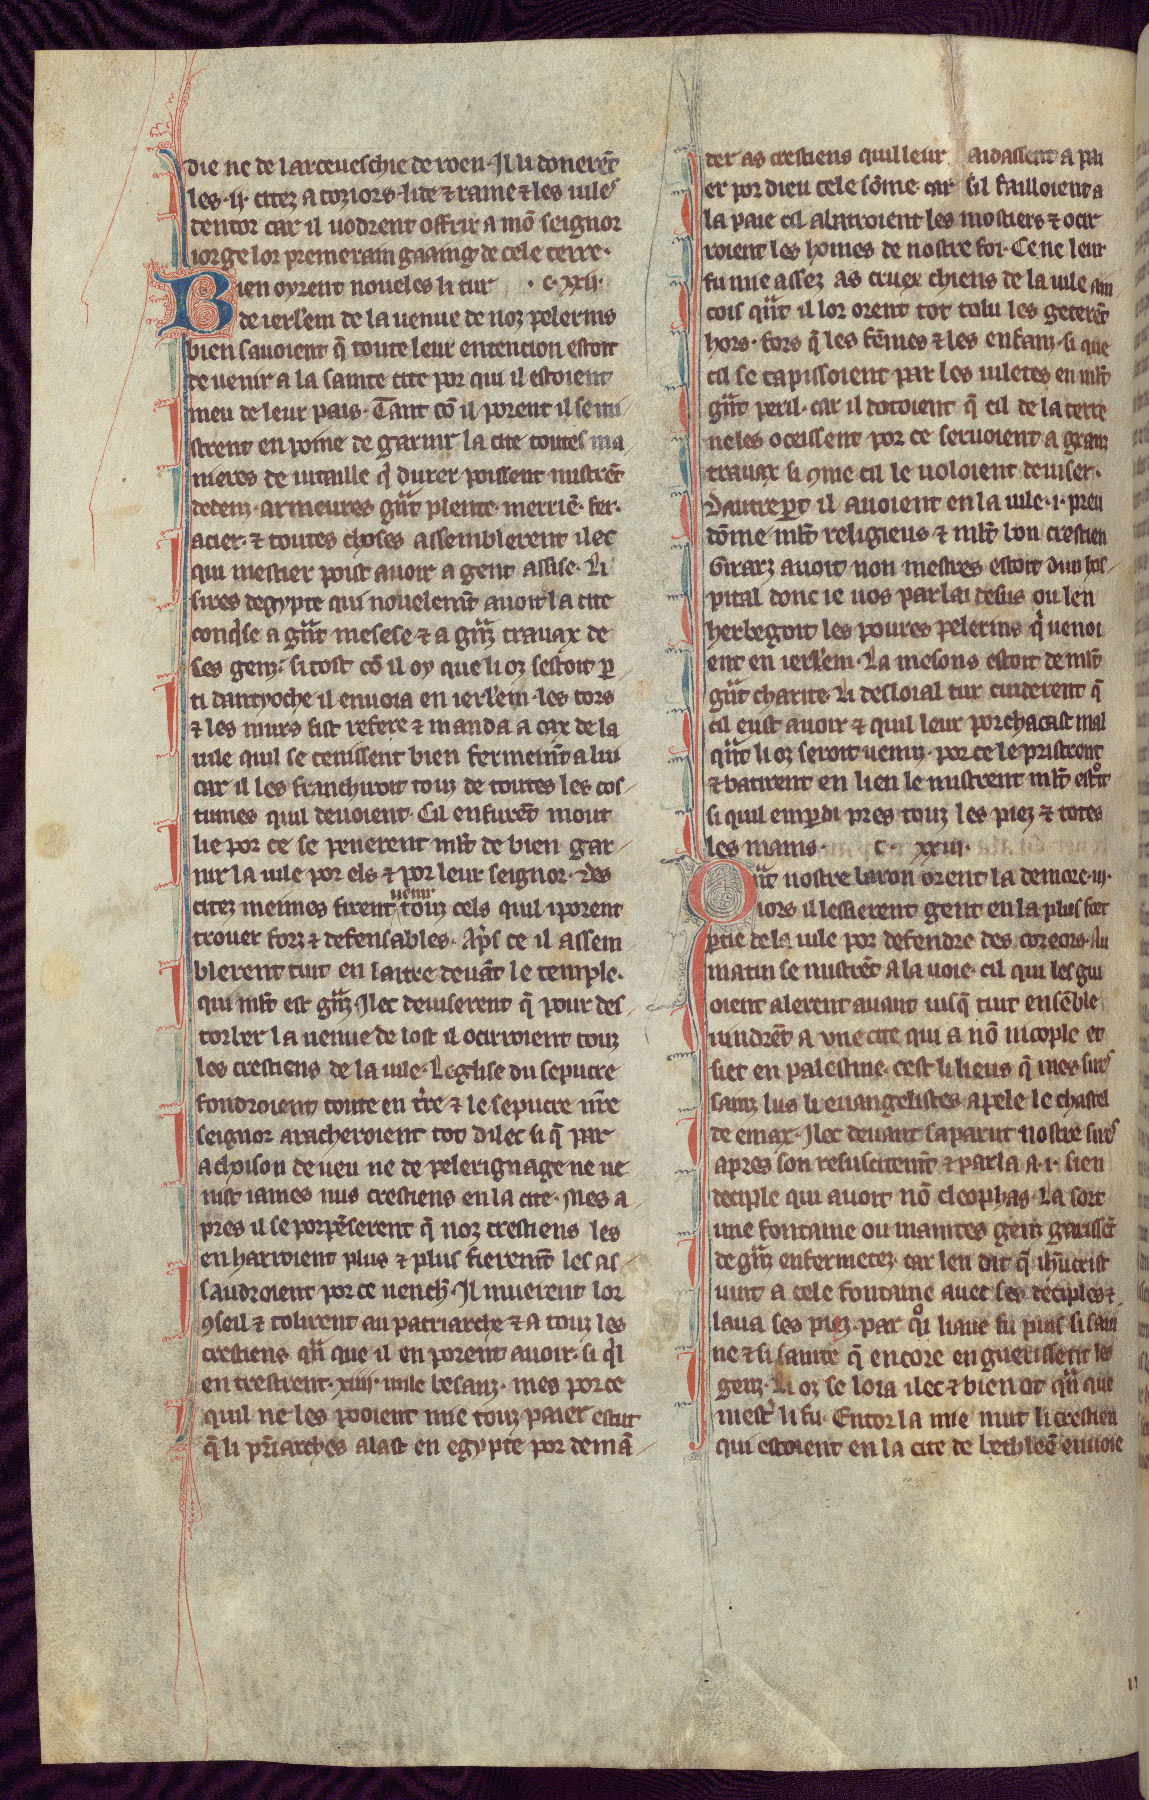 die ne de larceueschie de roen. Il li donerēt
les .ij. citez a toziors. lide ⁊ rame ⁊ les uiles
dentor car il uodrent offrir a mō seignor
iorge lor premerain gaaing de cele terre.
Bien oyrent noueles li tur .c. xxij.
de ierłem de la uenue de noz pelerins
bien sauoient q̄ toute leur entencion estoit
de uenir a la sainte cite por qui il estoient
meu de leur pais. Tant cō il porent il se mi
strent en poine de garnir la cite toutes ma
nieres de uitaille q̄ durer poissent mistrēt
dedenz. armeures gr̄t plente. merriē. fer.
acier. ⁊ toutes choses assemblerent ilec
qui mestier poist auoir a gent assise. Li
sires degypte qui nouelem̄t auoit la cite
conq̄se a gr̄t mesese ⁊ a gr̄z trauax de
ses genz. si tost cō il oy que li oz sestoit p̱
ti dantyoche il enuoia en ierłem. les tors
⁊ les murs fist refere ⁊ manda a cax de la
uile quil se tenissent bien fermem̄t a lui
car il les franchiroit touz de toutes les cos
tumes quil deuoient. Cil en furēt mout
lie por ce se penerent ml̄t de bien gar
nir la uile por els ⁊ por leur seignor. Des
citez meimes firent uenir touz cels quil i porent
trouer forz ⁊ defensables. Ap̄s ce il assem
blerent tuit en laitre deuāt le temple.
qui ml̄t est gr̄z. Ilec deuiserent q̄ pour des
torber la uenue de lost il ocirroient touz
les crestiens de la uile. Leglise du sepucre
fondroient toute en tr̄re ⁊ le sepucre nr̄e
seignor aracheroient tot dilec si q̄ par
achoison de ueu ne de pelerignage ne ue
nist iames nus crestiens en la cite. Mes a
pres il se porpēserent q̄ noz crestiens les
en harroient plus ⁊ plus fierem̄t les as
saudroient por ce uench̄. Il muerent lor
9seil ⁊ tolirent au patriarche ⁊ a touz les
crestiens qr̄ que il en porent auoir. si q̄l
en trestrent .xiiij. mile besanz. mes por ce
quil ne les pooient mie touz paier estut
q̄ li pr̄iarches alast en egypte por demā
der as crestiens quil leur aidassent a pai
er por dieu cele sōme. car sil failloient a
la paie cil abatroient les mostiers ⁊ ocir
roient les homes de nostre foi. Ce ne leur
fu mie assez as cruex chiens de la uile ain
cois qr̄t il lor orent tot tolu les geterēt
hors. fors q̄ les fēmes ⁊ les enfanz. si que
cil se tapissoient par les uiletes en ml̄t
gr̄t peril. car il dotoient q̄ cil de la terre
ne les oceissent por ce seruoient a granz
trauax si 9me cil le uoloient deuiser.
Dautrep̱t il auoient en la uile .i. preu
dōme ml̄t religieus ⁊ ml̄t bon crestien
Girarz auoit non mestres estoit dun hos
pital donc ie uos parlai desus ou len
herbegoit les poures pelerins q̄ uenoi
ent en ierłem. La mesons estoit de ml̄t
gr̄t charite. Li desloial tur cuiderent q̄
cil eust auoir ⁊ quil leur porchacast mal
qr̄t li oz seroit uenuz. por ce le pristrent
⁊ batirent en lien le mistrent ml̄t estoit
si quil en p̱di pres touz les piez ⁊ totes
les mains. c. xxiij.
Qr̄t nostre baron orent la demore .iij.
iors il lessierent gent en la plus fort
p̱tie de la uile por defendre des coreors. Au
matin se mistrēt a la uoie. cil qui les gui
oient alerent auant iusq̄ tuit ensēble
uindrēt a vne cite qui a nō nicople et
siet en palestine. cest li lieus q̄ mes sires
sainz lus li euangelistes apele le chastel
de emax. Ilec deuant saparut nostre sires
apres son resuscitem̄t ⁊ parla a .i. sien
deciple qui auoit nō cleophas. La sort
une fontaine ou maintes genz garissēt
de gr̄z enfermetez. car len dit q̄ ih̄ucrist
uint a cele fontaine auec ses deciples ⁊
laua ses piez. par qoi liaue fu puis si sai
ne ⁊ si sainte q̄ encore en guerissent les
genz. Li oz se loia ilec ⁊ bien ot qr̄ que
mest̄ li fu. Entor la mie nuit li crestien
qui estoient en la cite de bethleē enuoie